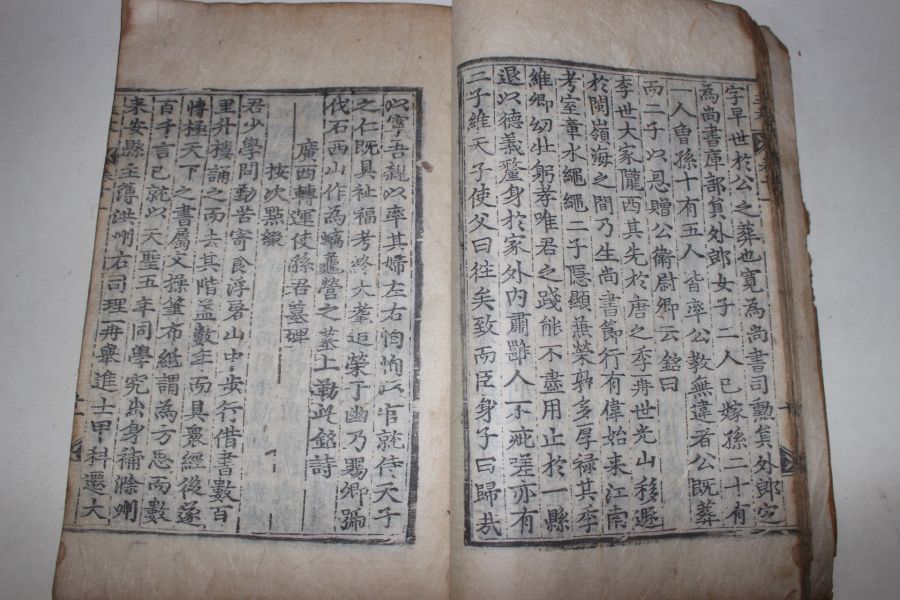 字早世於公之葬也寬為尚書司勳員外郎定
為尚書庫部員外郎女子二人已嫁孫二十有
一人曾孫十有五人皆率公教無違者公既葬
而二子以恩贈公衛尉卿云銘曰
李世大家隴西其先於唐之季再世光山移遯
於閩嶺海之間乃生尚書節行有偉始来江南
考室章水繩繩二子隱顯兼榮孰多厚祿其季
維卿幼壯躬孝唯君之踐能不盡用止於一縣
退以德義釐身於家外內肅雝人不疵瑳亦有
二子維天子使父曰往矣致而臣身子曰歸哉
以寧吾親以率其婦左右恂恂以宦就侍天子
之仁既具祉福考終大耋追榮于幽乃賜卿號
伐石西山作為螭龜營之墓上勒此銘詩
廣西轉運使孫君墓碑
按次點綴
君少學問勤苦寄食浮屠山中步行借書數百
里升樓誦之而去其階盖數年而具衆經後遂
博極天下之書屬文操筆布紙謂為方思而數
百千言已就以天聖五年同學究出身補滁州
来安縣主簿洪州右司理再舉進士甲科遷大